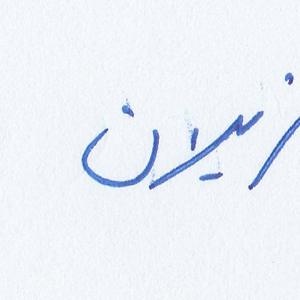 زیران